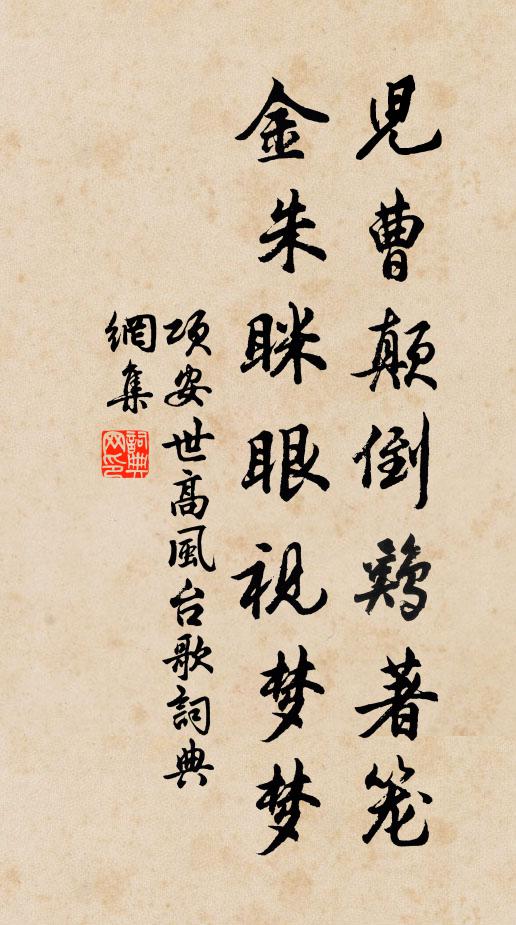 児曹颠倒鷄著笼
金朱眯眼視梦梦
项安世高風台歌詞典
網集
詞典网印